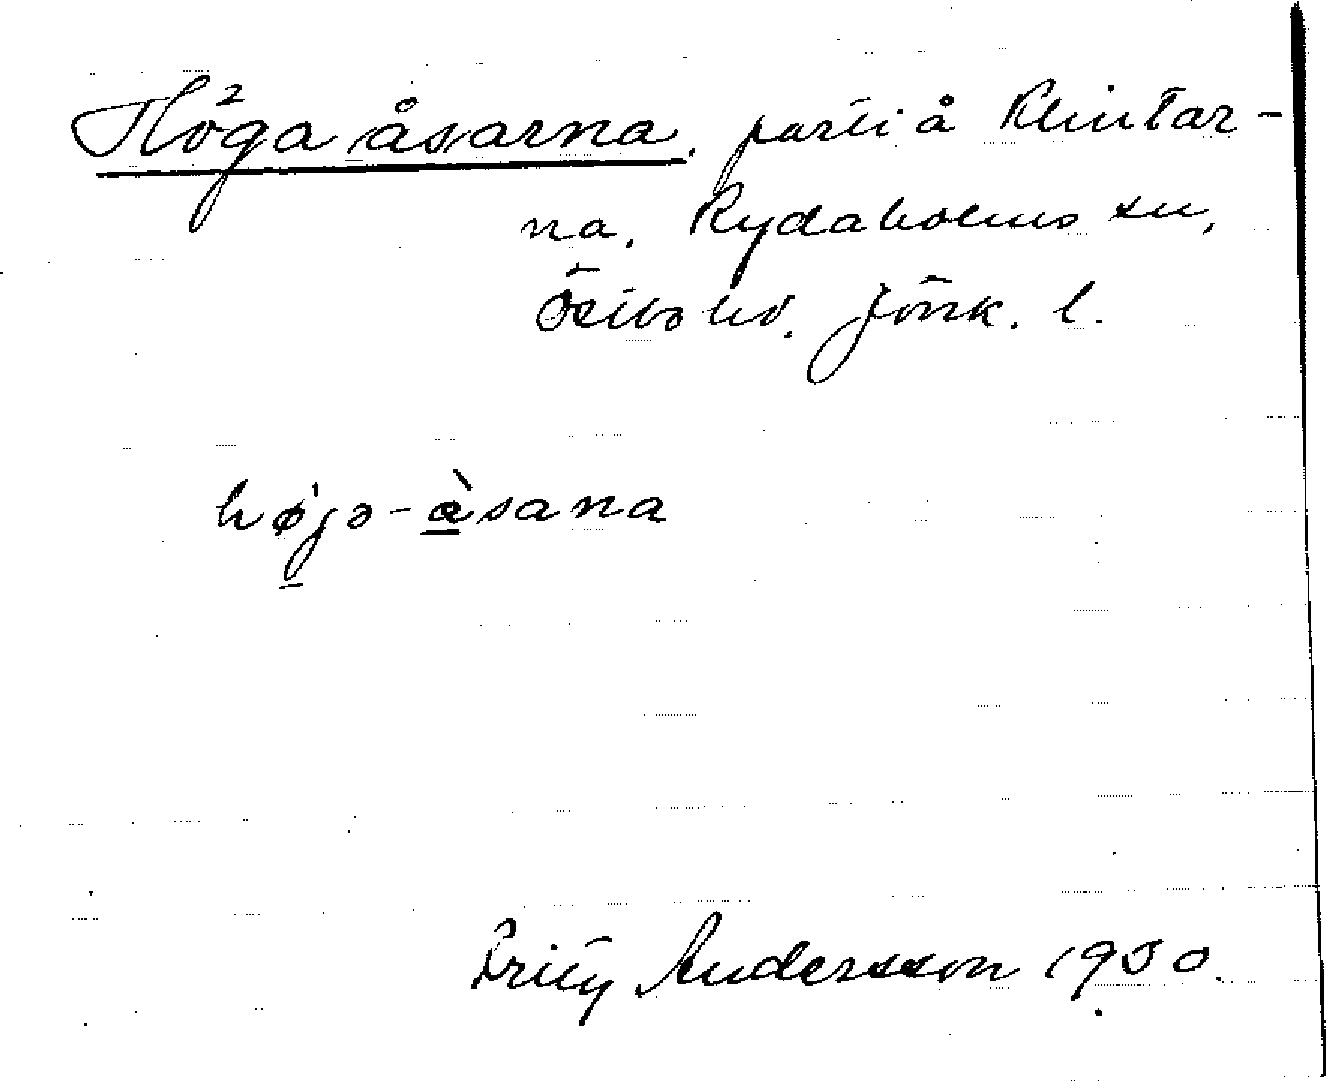 Höga åsarna, parti å Klintar-
na, Rydaholms sn,
Östbo hd. Jönk. l.
højə-åsana
Fritz Andersson 1930.